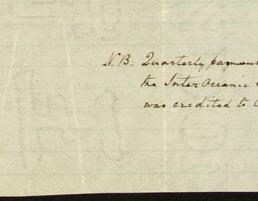 N.B. Quarterly
the InterOceanic
was credited to